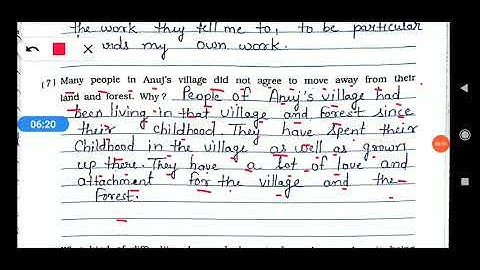 the work they tell me to, to be particular
rds my own work.
(7) Many people in Anuj's village did not agree to move away from their
land and forest. Why? People of Anuj's village had
been living in that village and forest since
their childhood They have spent their
Childhood in the village as well as grown
up there. They have a lot of love and
attachment for the village and the
Forest.
06:20